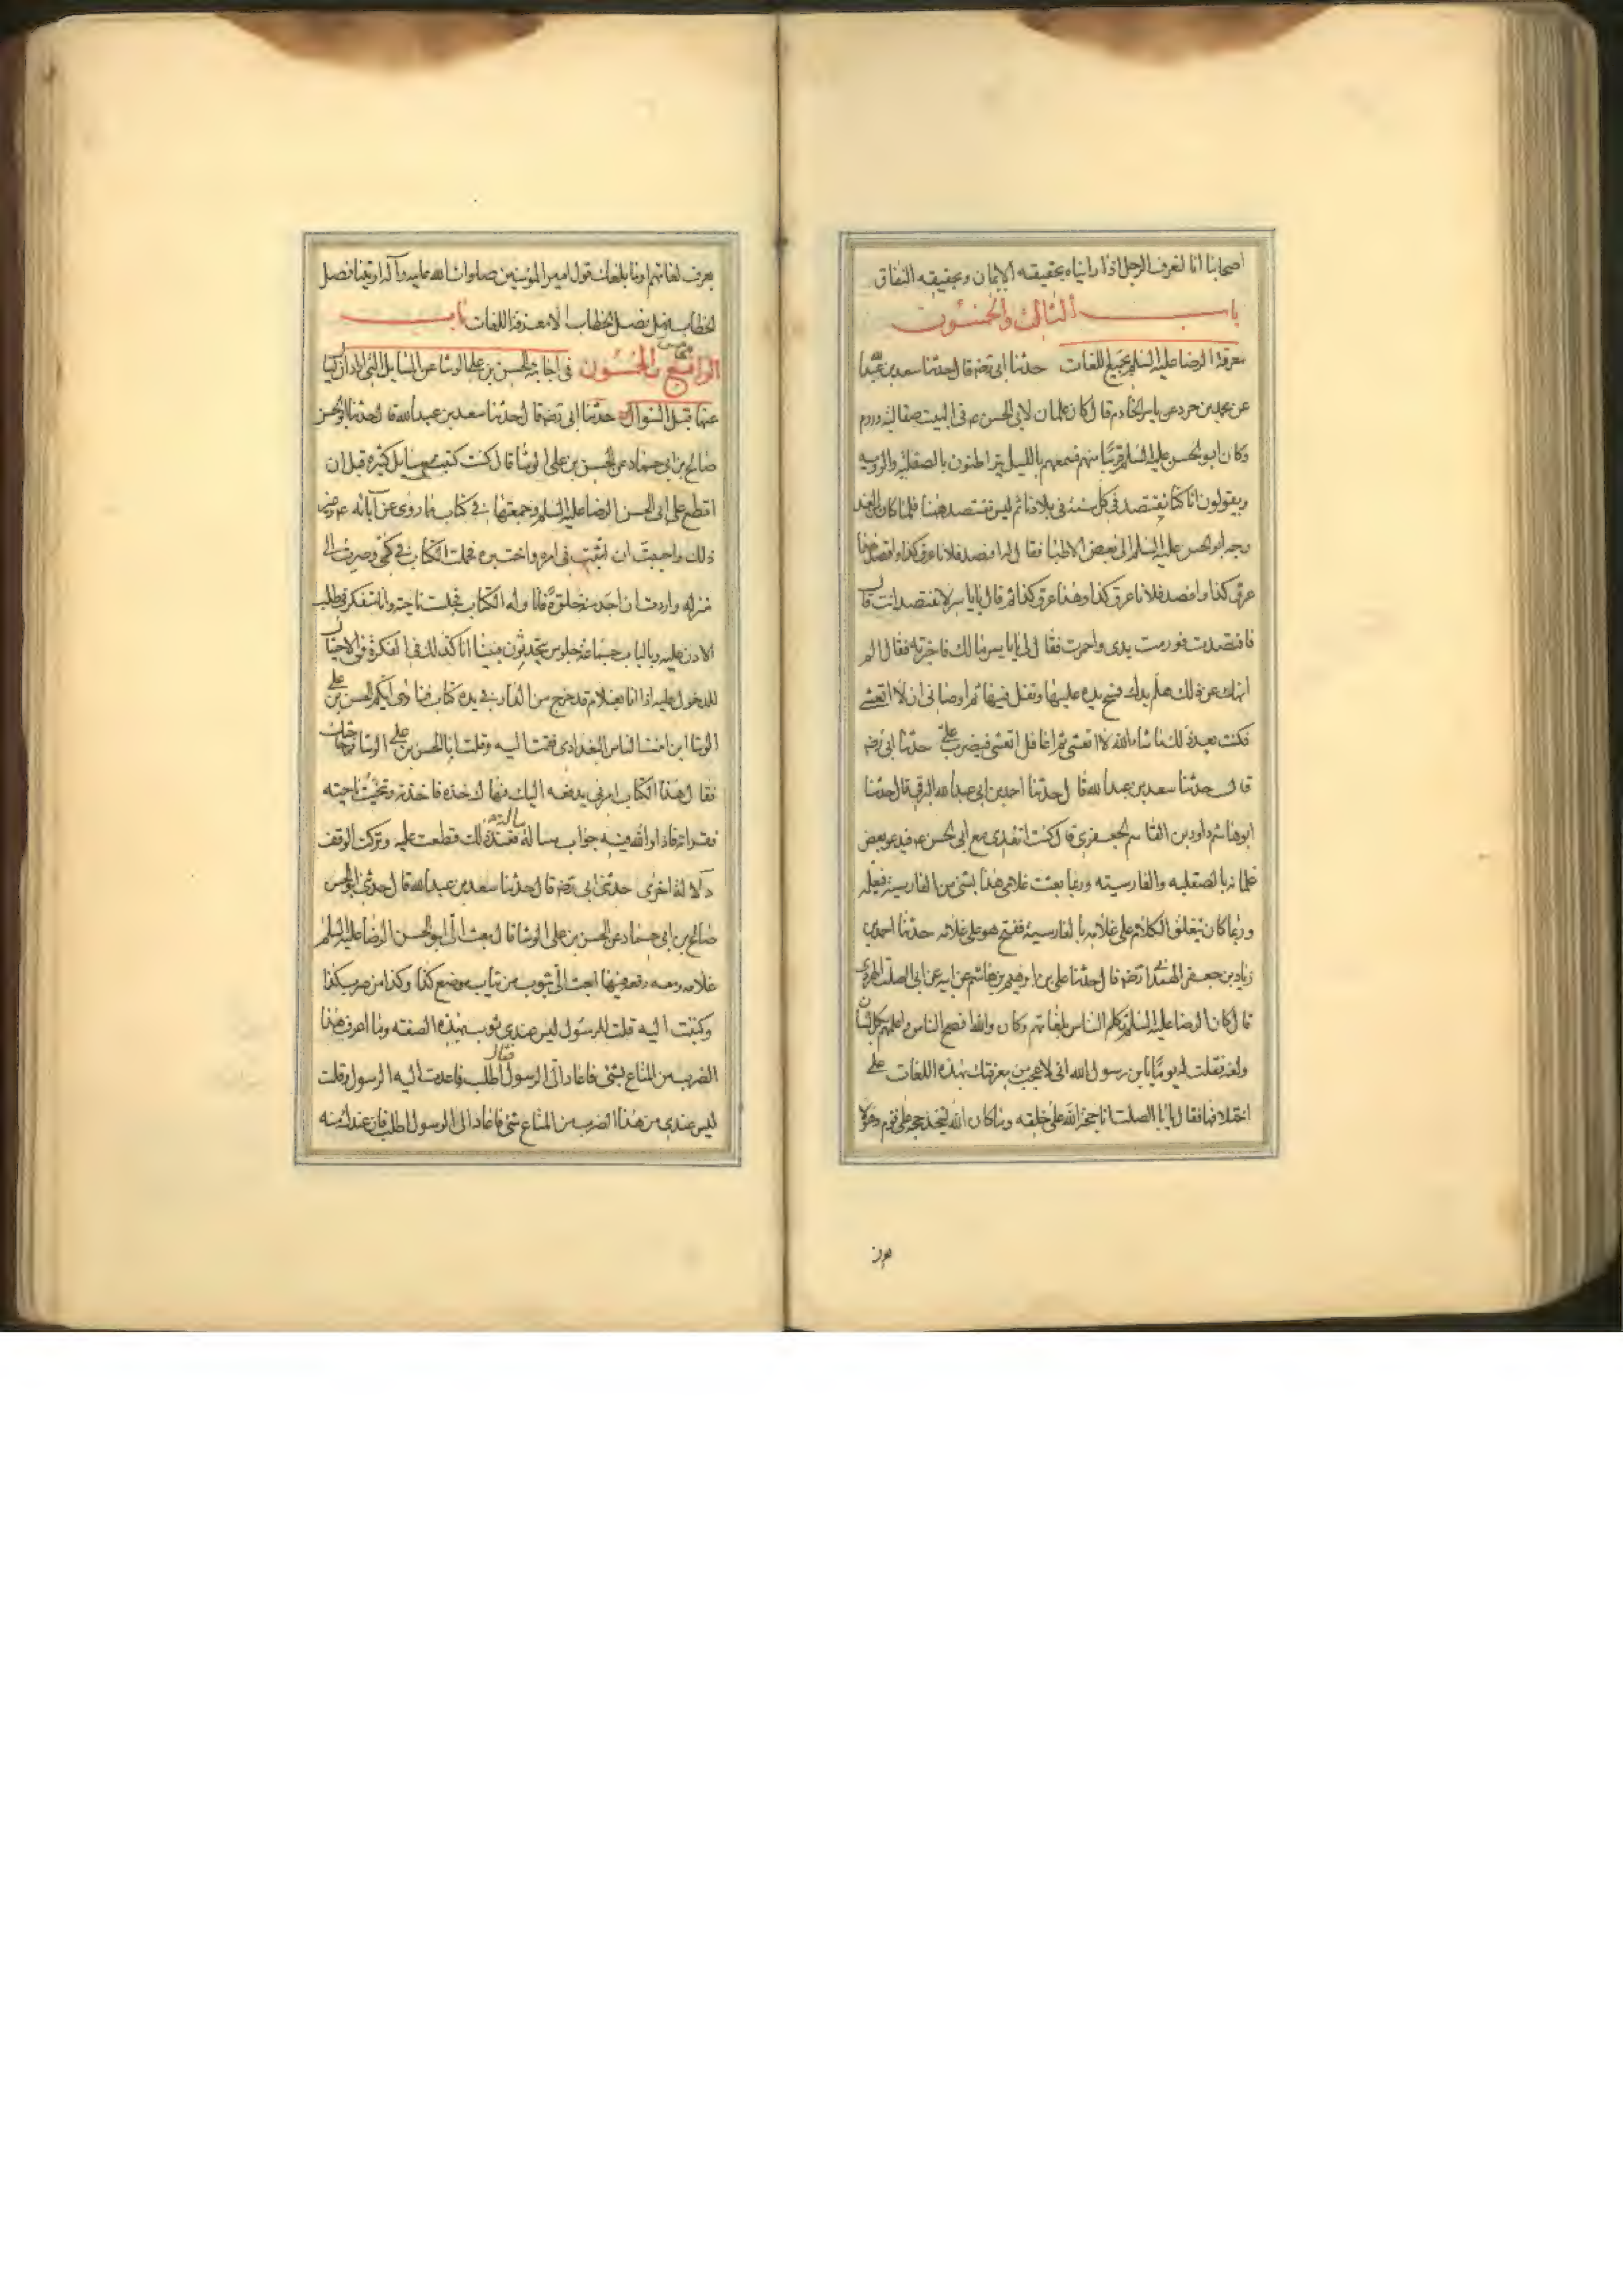 اصحابنا انا لنعرف الرجل اذا رايناه بحقيقه الايمان وبحقيقه النفاق
باب الثالث والخمسون
معرفة الرضا عليه السلم بجميع اللغات حدثنا ابى رضه قال حدثنا سعد بن عبد الله
عن محمد بن جرد عن ياسر الخادم قال كان غلمان لابى الحسن ع فى البيت صقالبه وروم
وكان ابو الحسن عليه السلم قريبا منهم فسمعهم بالليل يتراطنون بالصقلبيه والروميه
ويقولون انا كنا نفتصد فى كل سنه فى بلادنا ثم ليس نفتصد ههنا فلما كان من الغد
وجه ابو الحسن عليه السلم الى بعض الاطبا فقال له افصد فلانا عرق كذا وافصد فلانا
عرق كذا وافصد فلانا عرق كذا وهذا عرق كذا ثم قال يا ياسر لا تفتصد انت قال
فافتصدت فورمت يدى واحمرت فقال لى يا ياسر مالك فاخبرته فقال الم
انهك عن ذلك هلم يدك فمسح يده عليها وتفل فيها ثم اوصانى ان لا اتعشى
فكنت بعد ذلك ماشاء الله لا اتعشى ثم اغافل اتعشى فيضرب على حدثنا ابى رضه
قال حدثنا سعد بن عبد الله قال حدثنا احمد بن ابى عبد الله البرقى قال حدثنا
ابو هاشم داود بن القاسم الجعفرى قال كنت اتغدى مع ابى الحسن ع فيدعو بعض
غلمانه بالصقلبيه والفارسيه وربما بعثت غلامى هذا بشئ من الفارسيه فيعلمه
وربما كان ينغلق الكلام على غلامه بالفارسيه فيفتح هو على غلامه حدثنا احمد بن
زياد بن جعفر الهمدانى رضه قال حدثنا على بن ابرهيم بن هاشم عن ابيه عن ابى الصلت الهروى
قال كان الرضا عليه السلم يكلم الناس بلغاتهم وكان والله افصح الناس واعلمهم بكل لسان
ولغه فقلت له يوما يابن رسول الله انى لاعجب من معرفتك بهذه اللغات على
اختلافها فقال يا ابا الصلت انا حجة الله على خلقه وما كان الله ليتخذ حجه على قوم وهو لا
يعرف
يعرف لغاتهم اوما بلغك قول امير المؤمنين صلوات الله عليه وآله اوتينا فصل
الخطاب فهل فصل الخطاب الا معرفة اللغات باب
الرابع والخمسون فى اجابته الحسن بن على الوشا عن المسايل التى اراد ان يساله
عنها قبل السوال حدثنا ابى رضه قال حدثنا سعد بن عبد الله قال حدثنا ابو الحسن
صالح بن ابى حماد عن الحسن بن على الوشا قال كنت كتبت معى مسايل كثيره قبل ان
اقطع على ابى الحسن الرضا عليه السلم وجمعتها فى كتاب مما روى عن آبائه ع وغير
ذلك واحببت ان اثبت فى امره واختبره فحملت الكتاب فى كمى وصرت الى
منزله واردت ان اجد منه خلوة فاناوله الكتاب فجلست ناحيه وانا متفكر فى طلب
الاذن عليه وبالباب جماعة جلوس يتحدثون فبينا انا كذلك فى الفكرة فى الاحتيال
للدخول عليه اذا انا بغلام قد خرج من الدار فى يده كتاب فنادى ايكم الحسن بن على
الوشا ابن ابنت الياس البغدادى فقمت اليه وقلت انا الحسن بن على الوشا فما حاجتك
فقال هذا الكتاب امرنى بدفعه اليك فهاك خذه فاخذته وتنحيت ناحيته
فقراته فاذا والله فيه جواب مساله مساله فعند ذلك قطعت عليه وتركت الوقف
دلالة اخرى حدثنى ابى رضه قال حدثنا سعد بن عبد الله قال حدثنى ابو الحسن
صالح بن ابى حماد عن الحسن بن على الوشا قال بعث الى ابو الحسن الرضا عليه السلم
غلامه ومعه رقعه فيها ابعث الى بثوب من ثياب موضع كذا وكذا من ضرب كذا
وكتبت اليه قلت للرسول ليس عندى ثوب بهذه الصفته وما اعرف هذا
الضرب من المتاع بشئ فاعاد الى الرسول فقال اطلب فاعدت اليه الرسول وقلت
ليس عندى من هذا الضرب من المتاع شئ فاعاد الى الرسول اطلب فان عندك منه